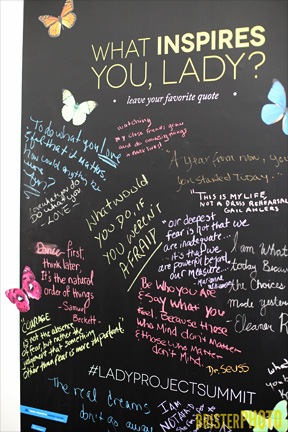 WHAT INSPIRES
YOU, LADY?
leave your favorite quote
watching
my close friends grow
and do amazing things
To do what you love
&
How could anything
A year from now, you
you started Today."
"THIS IS MY LIFE,
NOT A DRESS REHEARSAL
do what you
LOVE
What would
YOU DO, IF
YOU WEREN'T
AFRAID
"our deepest
fear is not that we
are inadequate
it's that we
are powerful beyond
our measure"
"I am What
today Because
the Choices
made yesterday
Eleanor R
Dance First.
Think later.
It's the natural
order of things
- Samuel
Beckett.
Be Who You Are
& Say What You
Feel. Because those
Who Mind don't Matter
& those who Matter
don't Mind.
- Dr. Seuss
"COURAGE
is not the absence
of fear, but rather the
judgement that something
other than fear is more important"
#LADYPROJECTSUMMIT
The real dreams
don't
I AM
NOTHING
BRISTERPHOTO